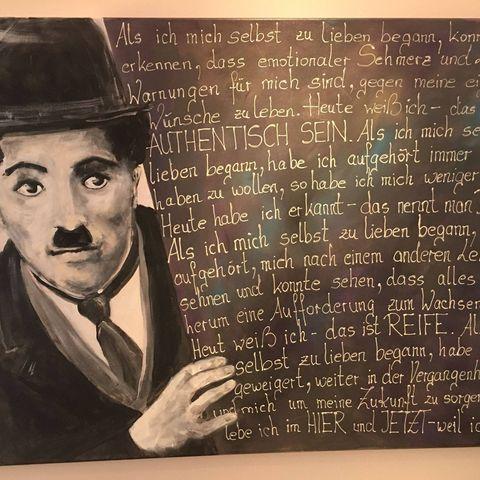 Als ich mich selbst zu lieben begann, konn
erkennen, dass emotionaler Schmerz und
Warnungen für mich sind, gegen meine ei
Wünsche zu leben. Heute weiß ich - das
AUTHENTISCH SEIN. Als ich mich se
lieben begann, habe ich aufgehört immer
haben zu wollen, so habe ich mich weniger
Heute habe ich erkannt - das nennt man
Als ich mich selbst zu lieben begann,
aufgehört, mich nach einem anderen Le
sehnen und konnte sehen, dass alles
herum eine Aufforderung zum Wachsen
Heut weiß ich - das ist REIFE. Al
selbst zu lieben begann, habe
geweigert, weiter in der Vergangenh
und mich um meine Zukunft zu sorgen
lebe ich im HIER und JETZT - weil ic